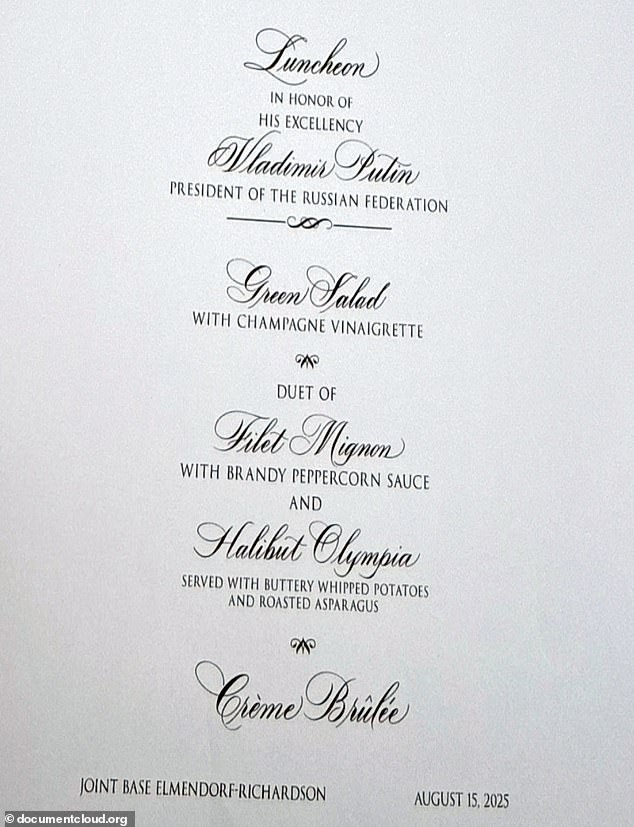 Luncheon
IN HONOR OF
HIS EXCELLENCY
Vladimir Putin
PRESIDENT OF THE RUSSIAN FEDERATION
Green Salad
WITH CHAMPAGNE VINAIGRETTE
DUET OF
Filet Mignon
WITH BRANDY PEPPERCORN SAUCE
AND
Halibut Olympia
SERVED WITH BUTTERY WHIPPED POTATOES
AND ROASTED ASPARAGUS
Crème Brûlée
JOINT BASE ELMENDORF-RICHARDSON AUGUST 15, 2025
© documentcloud.org